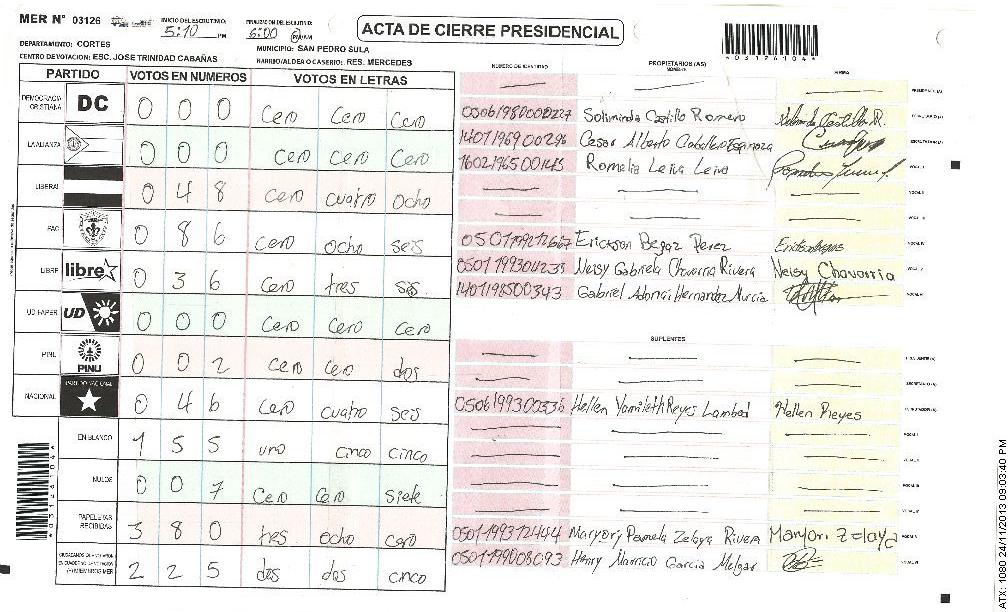 MER Nº 03126
INICIO DEL ESCRUTINIO: 5:10 PM
FINALIZACION DEL ESCRUTINIO: 6:00
ACTA DE CIERRE PRESIDENCIAL
*03126104*
DEPARTAMENTO: CORTES
MUNICIPIO: SAN PEDRO SULA
CENTRO DE VOTACION: ESC. JOSE TRINIDAD CABAÑAS
BARRIO/ALDEA O CASERIO: RES. MERCEDES
PARTIDO VOTOS EN NUMEROS VOTOS EN LETRAS
NUMERO DE IDENTIDAD PROPIETARIOS (AS) FIRMA
DEMOCRACIA CRISTIANA DC 0 0 0 Cero Cero Cero
LA ALIANZA 0 0 0 cero cero cero
LIBERAL 0 4 8 cero cuatro ocho
PAC 0 8 6 cero ocho seis
LIBRE libre 0 3 6 cero tres seis
UD FAPER UD 0 0 0 cero cero cero
PINU PINU 0 0 2 cero cero dos
NACIONAL PARTIDO NACIONAL 0 4 6 cero cuatro seis
EN BLANCO 1 5 5 uno cinco cinco
NULOS 0 0 7 cero cero siete
PAPELETAS RECIBIDAS 3 8 0 tres ocho cero
2 2 5 dos dos cinco
Soliminda Castillo Romero
1401196900296 Cesar Alberto Caballero Espinoza
Romelia Leiva Leiva
Erickson Begaz Perez
0501199304233 Neisy Gabriela Chavarria Rivera Neisy Chavarria
1401198500343 Gabriel Adonai Hernandez Murcia
SUPLENTES
0506199300336 Hellen Yamileth Reyes Hellen Reyes
0501199312444 Maryori Pamela Zelaya Rivera Maryori Zelaya
0501199008093 Henry Mauricio Garcia Melgar
ATX: 1080 24/11/2013 09:03:40 PM